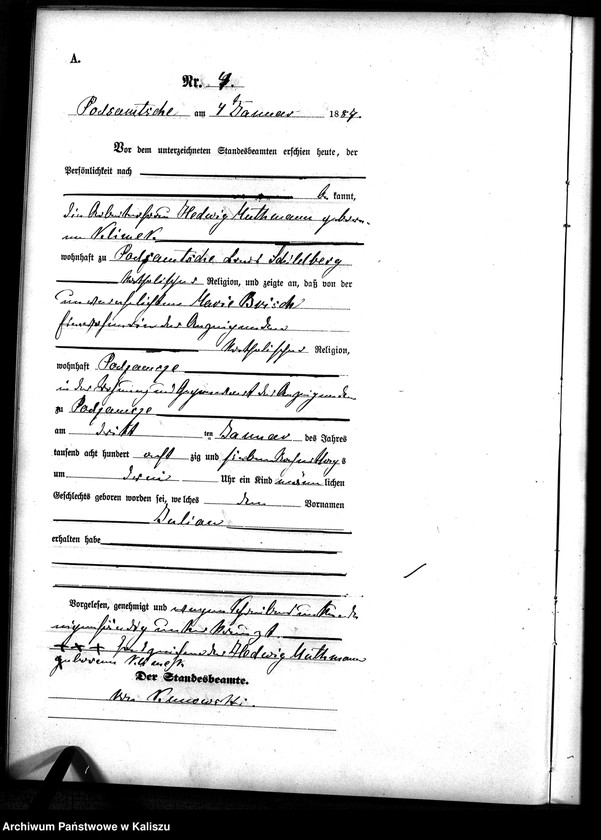 A.
Nr. 4.
Podsamtsche am 4 Januar 1887.
Vor dem unterzeichneten Standesbeamten erschien heute, der
Persönlichkeit nach
kannt,
die Arbeiterfrau Hedwig Muthmann gebore-
ne Klimek
wohnhaft zu Podsamtsche Schildberg
katholischer Religion, und zeigte an, daß von der
unverehelichten Marie
der Anzeigenden
katholischer Religion,
wohnhaft Podzamcze
in der Wohnung und Gegenwart der Anzeigenden
zu Podzamcze
am dritten Januar des Jahres
tausend acht hundert achtzig und sieben
um Uhr ein Kind männlichen
Geschlechts geboren worden sei, welches den Vornamen
Julian
erhalten habe
Vorgelesen, genehmigt und wegen
eigenhändig unterkreuzt
+ + + Handzeichen der Hedwig Muthmann
geborene Klimek
Der Standesbeamte.
Archiwum Państwowe w Kaliszu